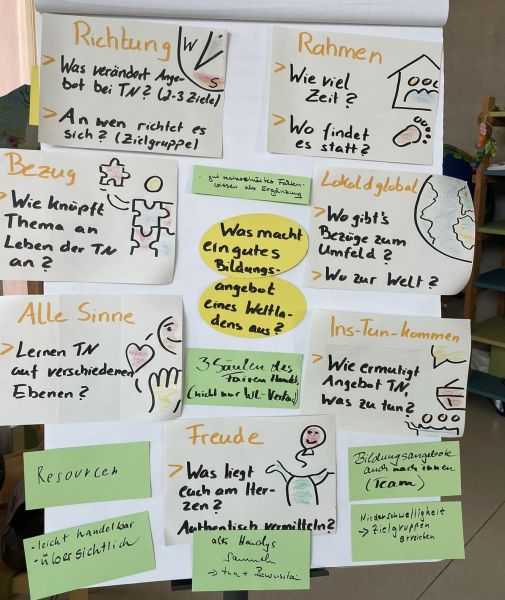 Richtung
W
S
> Was verändert Ange-
bot bei TN? (2-3 Ziele)
> An wen richtet es
sich? (Zielgruppe)
Rahmen
> Wie viel
Zeit?
> Wo findet
es statt?
Bezug
> Wie knüpft
Thema an
Leben der TN
an?
- gut recherchiertes Fakten-
wissen als Ergänzung
Lokal & global
> Wo gibt's
Bezüge zum
Umfeld?
> Wo zur Welt?
Was macht
ein gutes
Bildungs-
angebot
eines Weltla-
dens aus?
Alle Sinne
> Lernen TN
auf verschiedenen
Ebenen?
3 Säulen des
Fairen Handels
(nicht nur WL-Verkauf)
Ins-Tun-kommen
> Wie ermutigt
Angebot TN,
was zu tun?
Freude
> Was liegt
euch am Her-
zen?
Authentisch vermitteln?
Resourcen
- leicht handelbar
- übersichtlich
alte Handys
sammeln
→ tun + Bewusstsein
Bildungsangebote
auch nach innen
(Team)
Niederschwelligkeit
→ Zielgruppen
erreichen